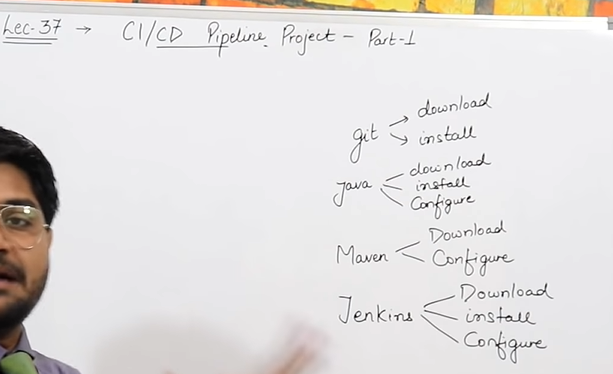 Lec-37 → CI/CD Pipeline Project - Part-1
git → download
→ install
Java download
install
Configure
Maven Download
Configure
Jenkins Download
install
Configure